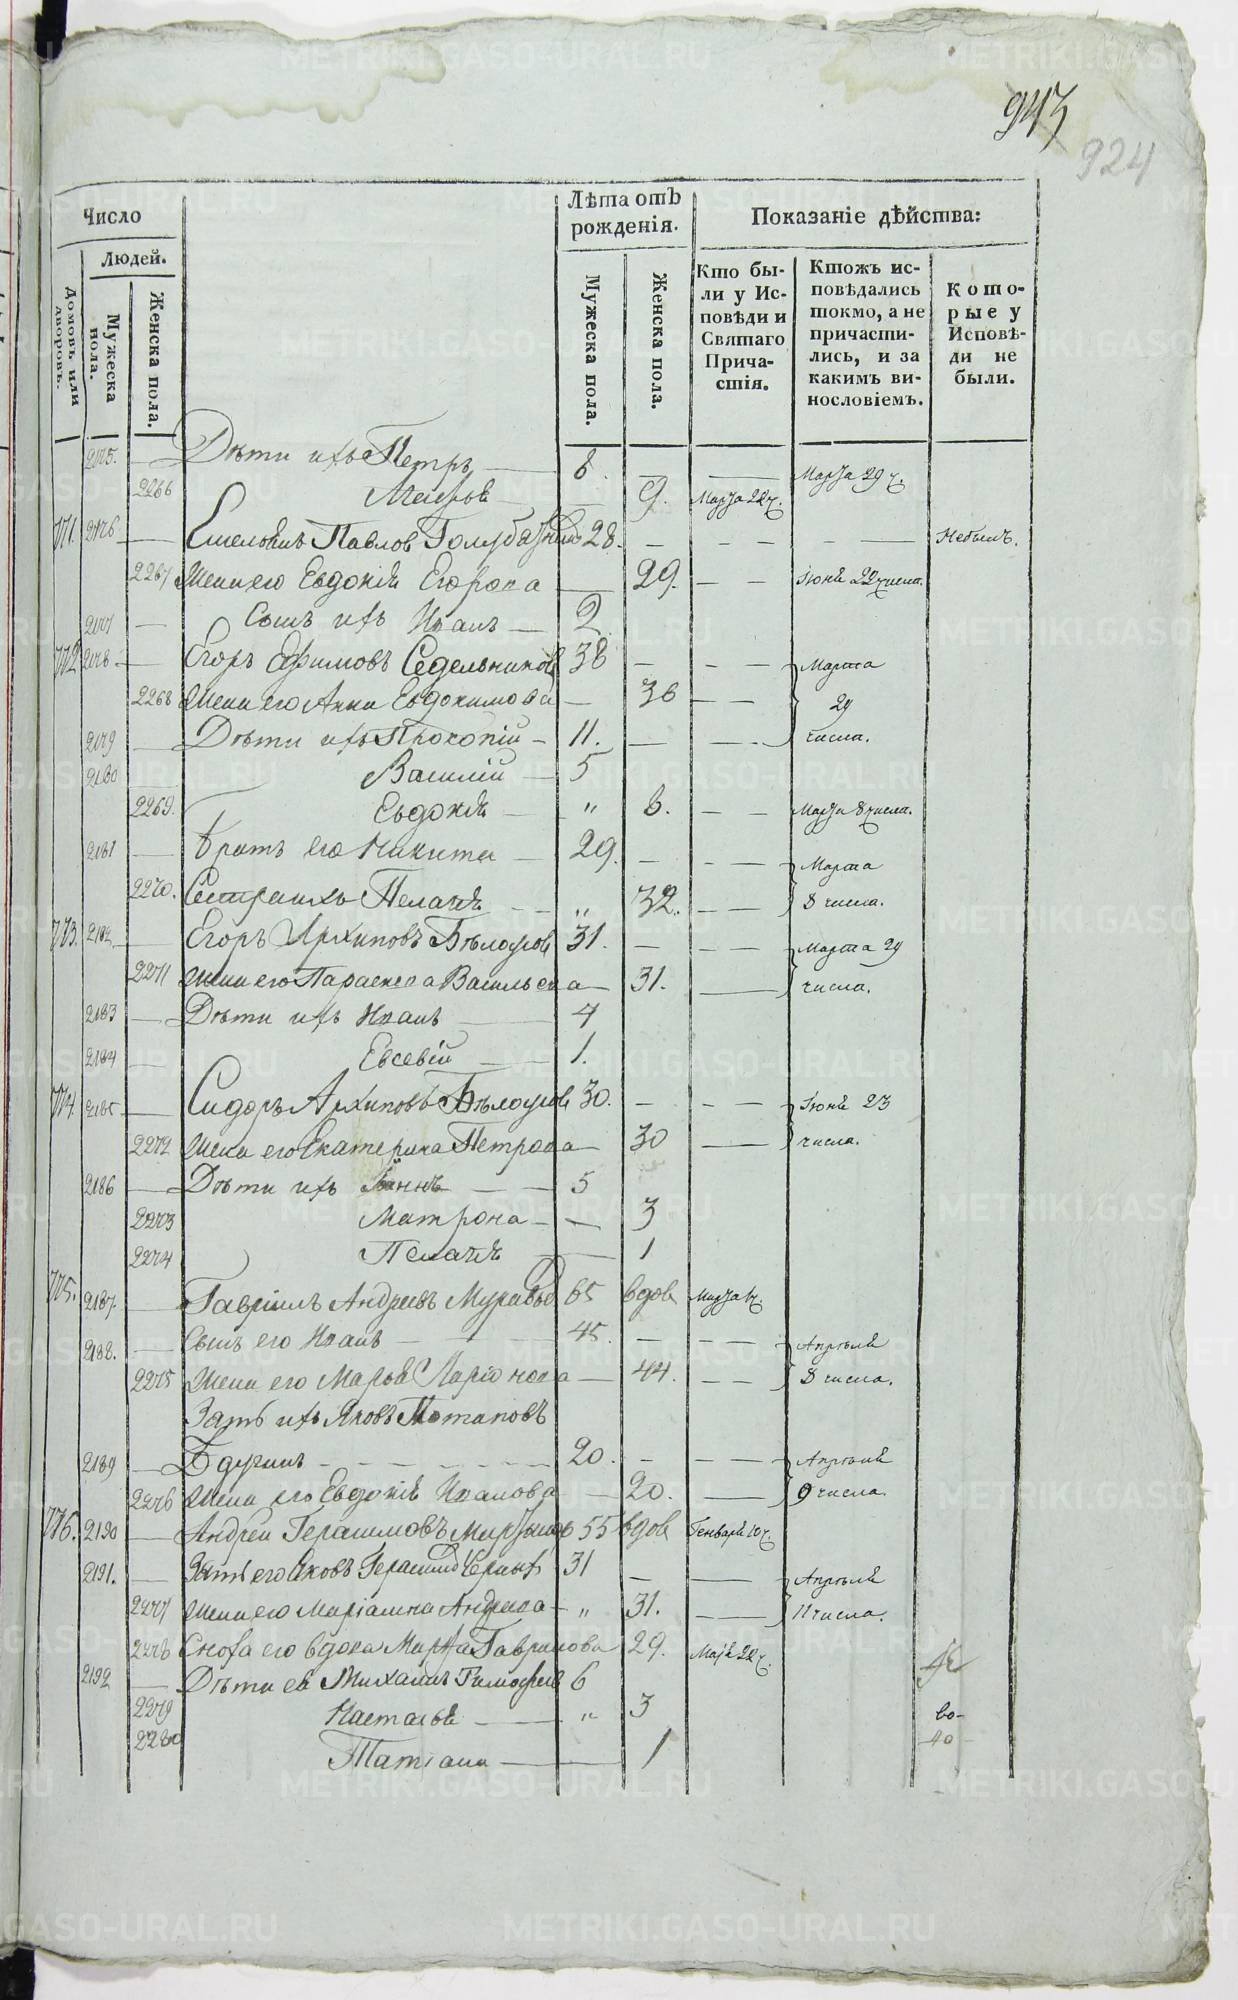 943
924
Число
Людей.
Домовъ или дворовъ.
Мужеска пола.
Женска пола.
Лѣта отъ рожденія.
Мужеска пола.
Женска пола.
Показаніе дѣйства:
Кто были у Исповѣди и Святаго Причастія.
Ктожъ исповѣдались токмо, а не причастились, и за какимъ винословіемъ.
Которые у Исповѣди не были.
2175. — Дѣти ихъ Петръ — 8. — — Марта 29 ч.
2266 Марья — 9. Марта 22 ч.
771. 2176 — Павлов 28. — — — — — Небылъ.
2267 Жена его Евдокія Егорова — 29. — — Іюня 22 числа.
2177 — Сынъ ихъ Иванъ — 2
772 2178 — Егоръ Ефимовъ Седельников 38 — — — Марта
2268 Жена его Анна Евдокимова — 36 — — 29
2179 — Дѣти ихъ Прокопій — 11. — — числа.
2180 — Василій — 5
2269. Евдокія — " 8. — — Марта 8 числа.
2181 — Братъ его Никита — 29. — — — Марта
2270. Сестра ихъ Пелагія — " 32. — — 8 числа.
773. 2182 — Егоръ Архиповъ Бѣлоусов 31. — — — Марта 29
2271 Жена его Параскева Васильева — 31. — числа.
2183 — Дѣти ихъ Иванъ — 4
2184 — Евсевій — 1.
774. 2185 — Сидоръ Архиповъ Бѣлоусов 30. — — — Іюня 23
2272 Жена его Екатерина Петрова — 30 — числа.
2186 — Дѣти ихъ — — 5
2273 Матрона — — 3
2274 Пелагія — 1
775. 2187 — Гавріилъ Андреевъ 65 вдов Марта ч.
2188. — Сынъ его Иванъ — 45. — — — Апрѣля
2275 Жена его Марья Ларіонова — 44. — — 8 числа.
Зять ихъ Яковъ Потаповъ
2189 — — 20. — — — Апрѣля
2276 Жена его Евдокія Иванова — 20. — 9 числа.
776. 2190 — Андрей Герасимовъ 55 вдов Генваря 20 ч.
2191. — Зять его Яковъ 31 — — Апрѣля
2277 Жена его Маріамна Андреева — " 31. — — 11 числа.
2278 Сноха его вдова Гаврилова 29. Маія 22 ч.
2192 — Дѣти ея Михаилъ Тимофеев 6
2279 Настасья — " 3 во-
2280 Татіана — 1
METRIKI.GASO-URAL.RU